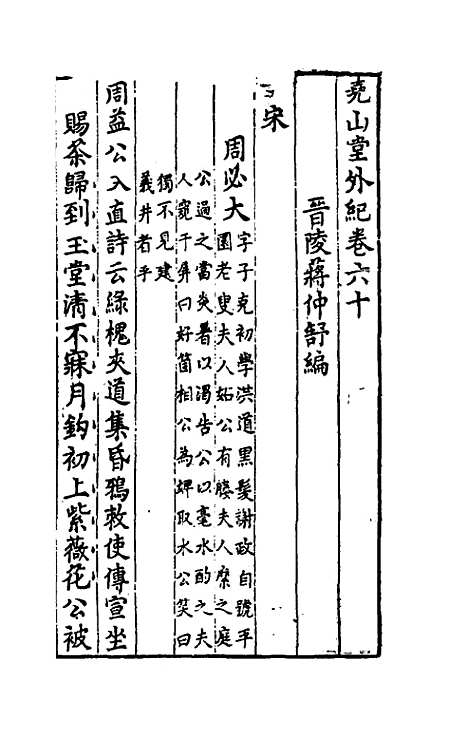 堯山堂外紀卷六十
晉陵蔣仲舒編
宋
周必大
字子充初學洪道黑髮謝政自號平
園老叟夫人妬公有媵夫人縻之庭
公過之當炎暑以渴告公以毫水酌之夫
人窺于屏曰好箇相公為婢取水公笑曰
獨不見建
義井者乎
周益公入直詩云綠槐夾道集昏鴉敕使傳宣坐
賜茶歸到玉堂清不寐月鈎初上紫薇花公被